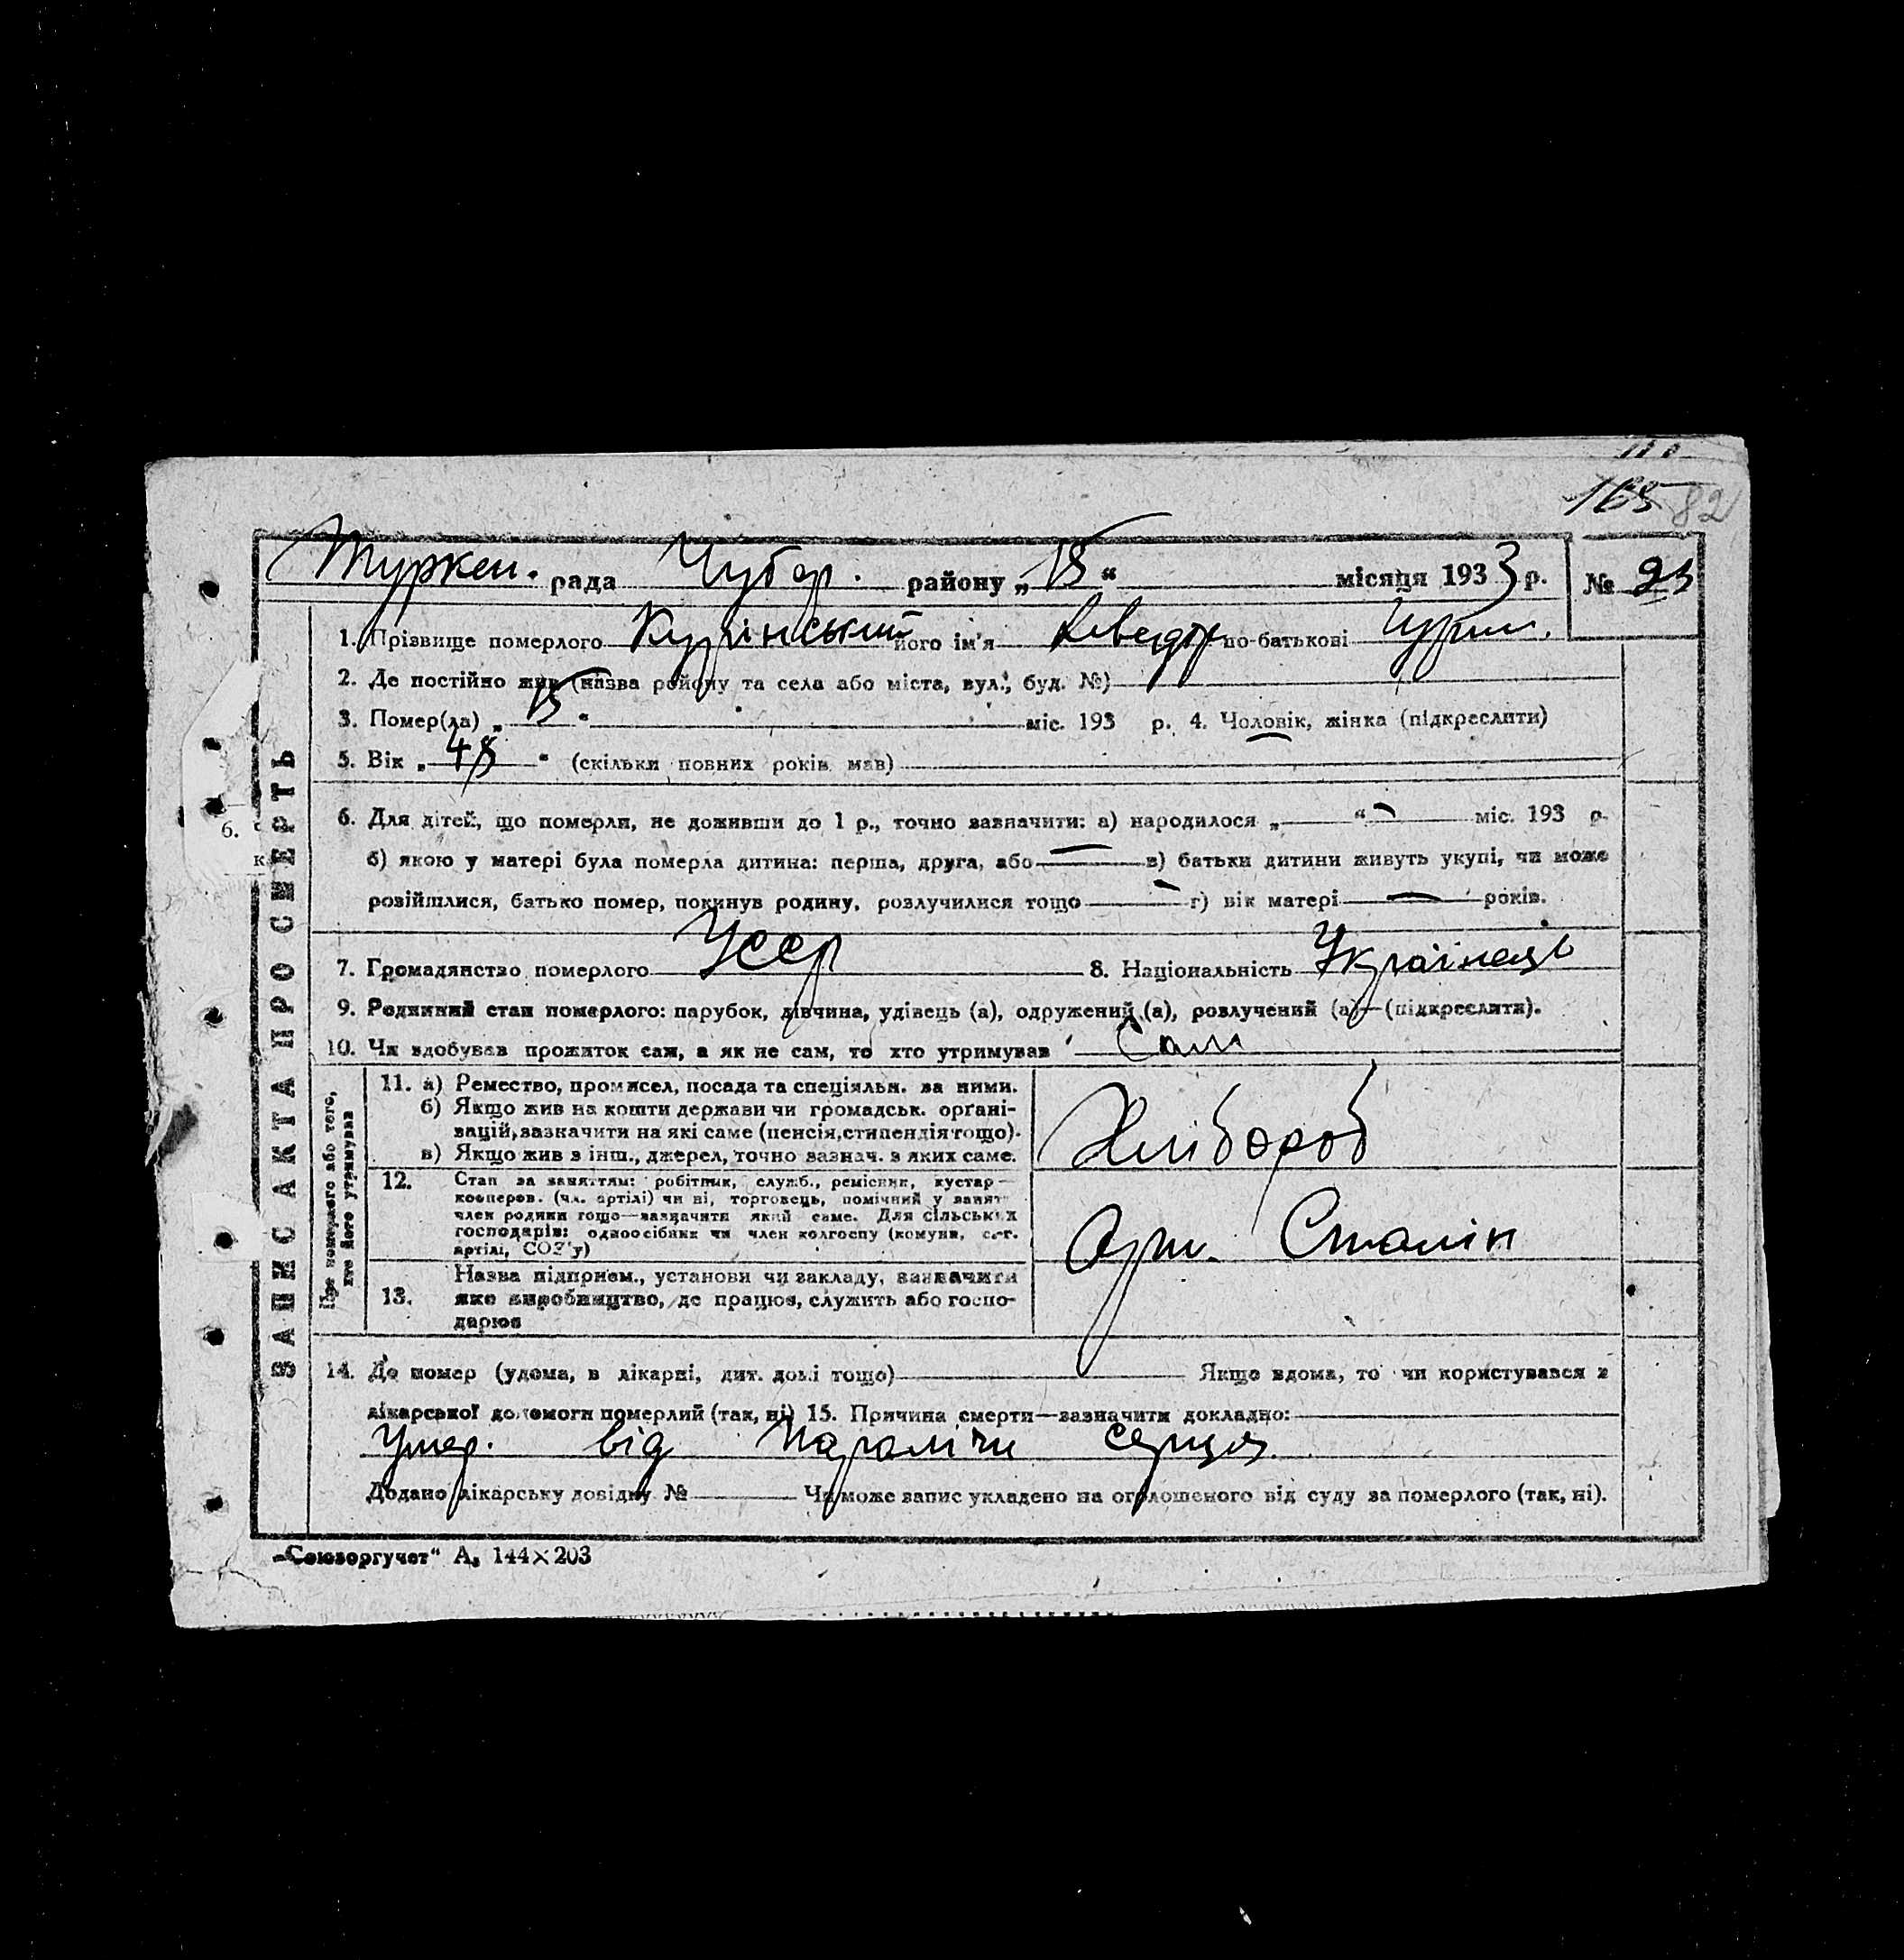 165 82
Туркен. рада Чубар. району „15“ місяця 1933 р. № 23
ЗАПИС АКТА ПРО СМЕРТЬ
1. Прізвище померлого його ім'я по-батькові
2. Де постійно жив (назва району та села або міста, вул., буд. №)
3. Помер(ла) „15“ міс. 193 р. 4. Чоловік, жінка (підкреслити)
5. Вік „48“ (скільки повних років мав)
6. Для дітей, що померли, не доживши до 1 р., точно зазначити: а) народилося „ “ міс. 193 р.
б) якою у матері була померла дитина: перша, друга, або в) батьки дитини живуть укупі, чи може
розійшлися, батько помер, покинув родину, розлучилися тощо г) вік матері років.
7. Громадянство померлого Усср 8. Національність Українець
9. Родинний стан померлого: парубок, дівчина, удівець (а), одружений (а), розлучений (а)—(підкреслити).
10. Чи здобував прожиток сам, а як не сам, то хто утримував Сам
Про померлого або того,
хто його утримував
11. а) Ремество, промисел, посада та спеціяльн. за ними.
б) Якщо жив на кошти держави чи громадськ. орґані-
зацій, зазначити на які саме (пенсія, стипендія тощо).
в) Якщо жив з інш., джерел, точно зазнач. з яких саме.
Хлібороб
12. Стан за заняттям: робітник, служб., ремісник, кустар—
кооперов. (чл. артілі) чи ні, торговець, помічний у занят.
член родини тощо—зазначити який саме. Для сільських
господарів: одноосібник чи член колгоспу (комуни, с.-г.
артілі, СОЗ'у)
Арт. Сталін
13. Назва підприєм., установи чи закладу, зазначити
яке виробництво, де працює, служить або госпо-
дарює
14. Де помер (удома, в лікарні, дит. домі тощо) Якщо вдома, то чи користувався з
лікарської допомоги померлий (так, ні) 15. Причина смерти—зазначити докладно:
Умер. від Паралічи серця.
Додано лікарську довідку № Чи може запис укладено на оголошеного від суду за померлого (так, ні).
„Союзоргучет“ А, 144×203